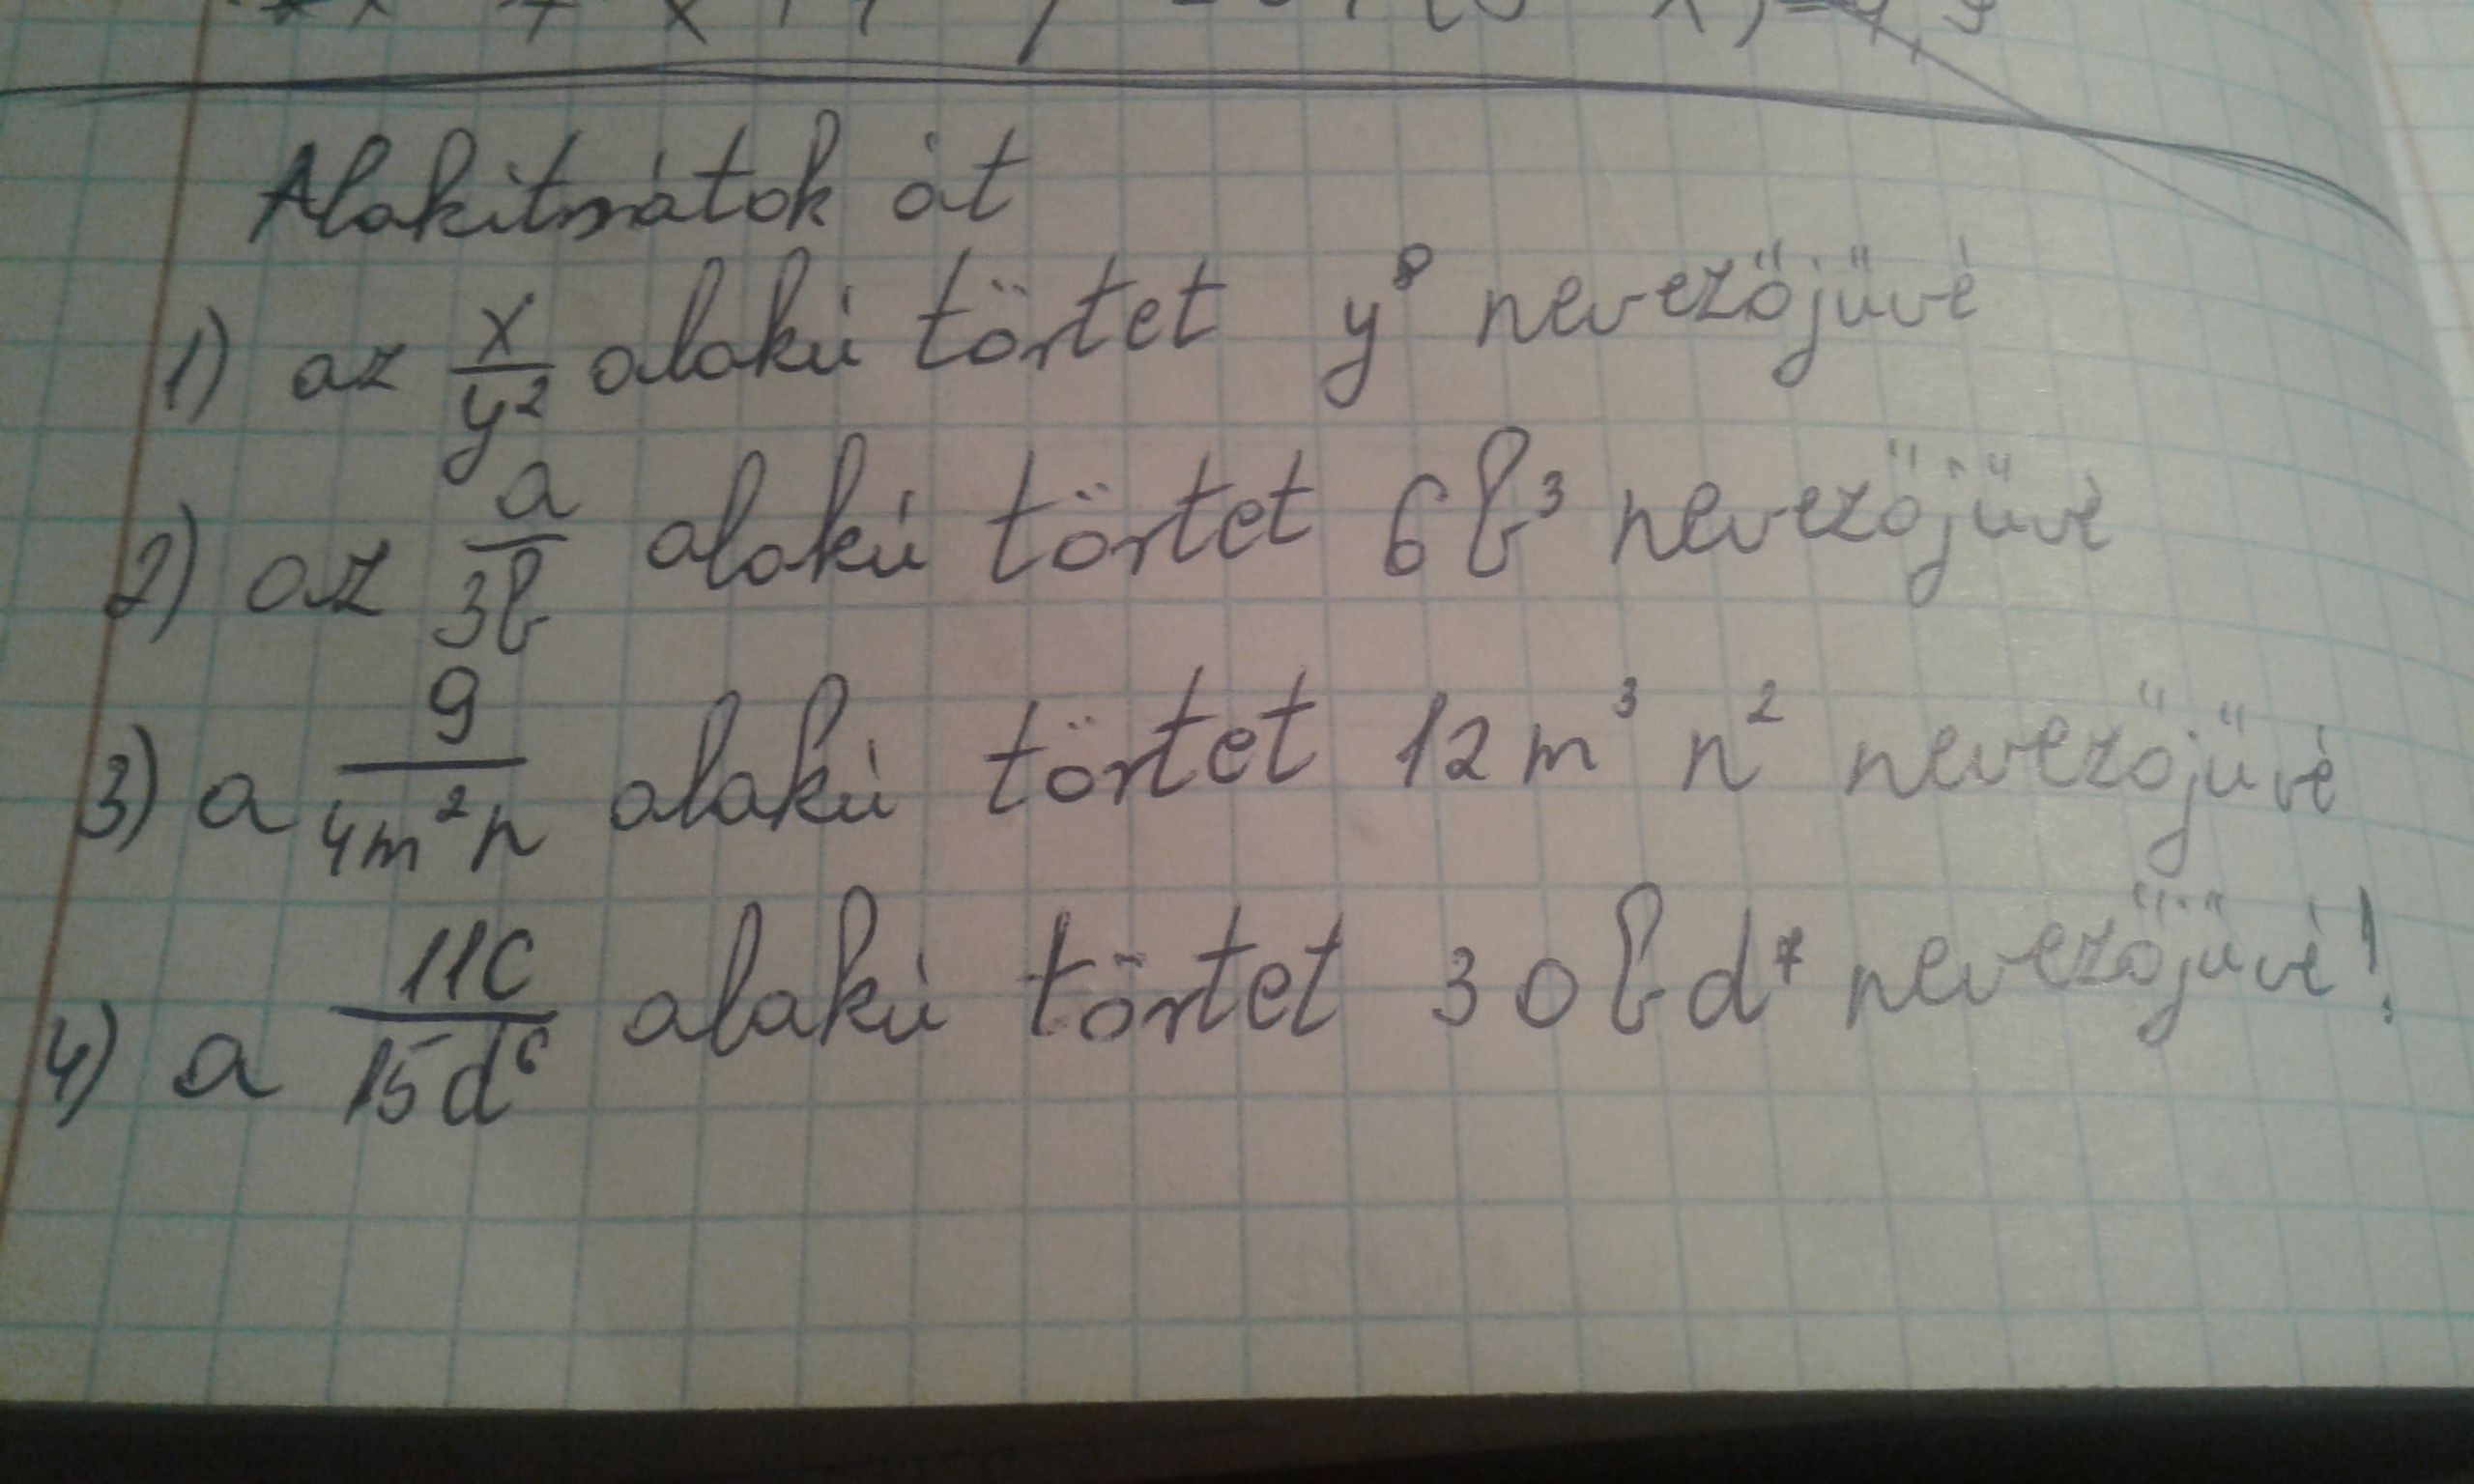 Alakitsátok át
1) az x/y² alakú törtet y⁸ nevezőjűvé
2) az a/3b alakú törtet 6b³ nevezőjűvé
3) a 9/4m²n alakú törtet 12m³n² nevezőjűvé
4) a 11c/15d⁶ alakú törtet 30bd⁷ nevezőjűvé!